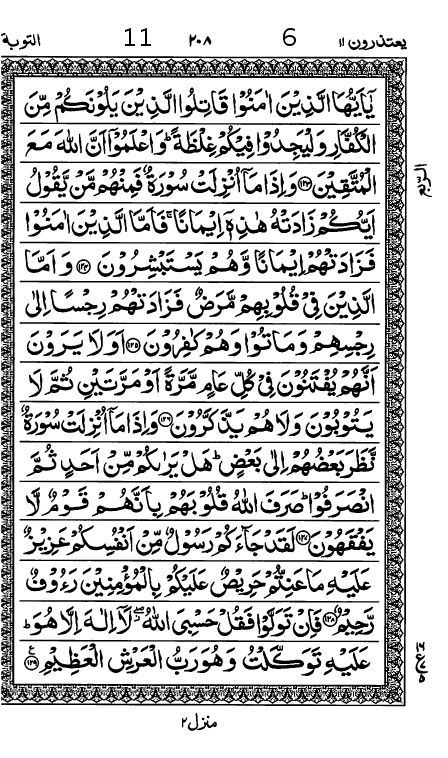 يعتذرون ١١ 6 ٢٠٨ 11 التوبة
يٰۤاَيُّهَا الَّذِيْنَ اٰمَنُوْا قَاتِلُوا الَّذِيْنَ يَلُوْنَكُمْ مِّنَ
الْكُفَّارِ وَلْيَجِدُوْا فِيْكُمْ غِلْظَةً ؕ وَاعْلَمُوْۤا اَنَّ اللّٰهَ مَعَ
الْمُتَّقِيْنَ ﴿۱۲۳﴾ وَاِذَا مَاۤ اُنْزِلَتْ سُوْرَةٌ فَمِنْهُمْ مَّنْ يَّقُوْلُ
اَيُّكُمْ زَادَتْهُ هٰذِهٖۤ اِيْمَانًا ۚ فَاَمَّا الَّذِيْنَ اٰمَنُوْا
فَزَادَتْهُمْ اِيْمَانًا وَّهُمْ يَسْتَبْشِرُوْنَ ﴿۱۲۴﴾ وَاَمَّا
الَّذِيْنَ فِيْ قُلُوْبِهِمْ مَّرَضٌ فَزَادَتْهُمْ رِجْسًا اِلٰى
رِجْسِهِمْ وَمَاتُوْا وَهُمْ كٰفِرُوْنَ ﴿۱۲۵﴾ اَوَلَا يَرَوْنَ
اَنَّهُمْ يُفْتَنُوْنَ فِيْ كُلِّ عَامٍ مَّرَّةً اَوْ مَرَّتَيْنِ ثُمَّ لَا
يَتُوْبُوْنَ وَلَا هُمْ يَذَّكَّرُوْنَ ﴿۱۲۶﴾ وَاِذَا مَاۤ اُنْزِلَتْ سُوْرَةٌ
نَّظَرَ بَعْضُهُمْ اِلٰى بَعْضٍ ؕ هَلْ يَرٰىكُمْ مِّنْ اَحَدٍ ثُمَّ
انْصَرَفُوْا ؕ صَرَفَ اللّٰهُ قُلُوْبَهُمْ بِاَنَّهُمْ قَوْمٌ لَّا
يَفْقَهُوْنَ ﴿۱۲۷﴾ لَقَدْ جَآءَكُمْ رَسُوْلٌ مِّنْ اَنْفُسِكُمْ عَزِيْزٌ
عَلَيْهِ مَا عَنِتُّمْ حَرِيْصٌ عَلَيْكُمْ بِالْمُؤْمِنِيْنَ رَءُوْفٌ
رَّحِيْمٌ ﴿۱۲۸﴾ فَاِنْ تَوَلَّوْا فَقُلْ حَسْبِيَ اللّٰهُ ۖ لَاۤ اِلٰهَ اِلَّا هُوَ ؕ
عَلَيْهِ تَوَكَّلْتُ وَهُوَ رَبُّ الْعَرْشِ الْعَظِيْمِ ﴿۱۲۹﴾ ع
منزل ٢